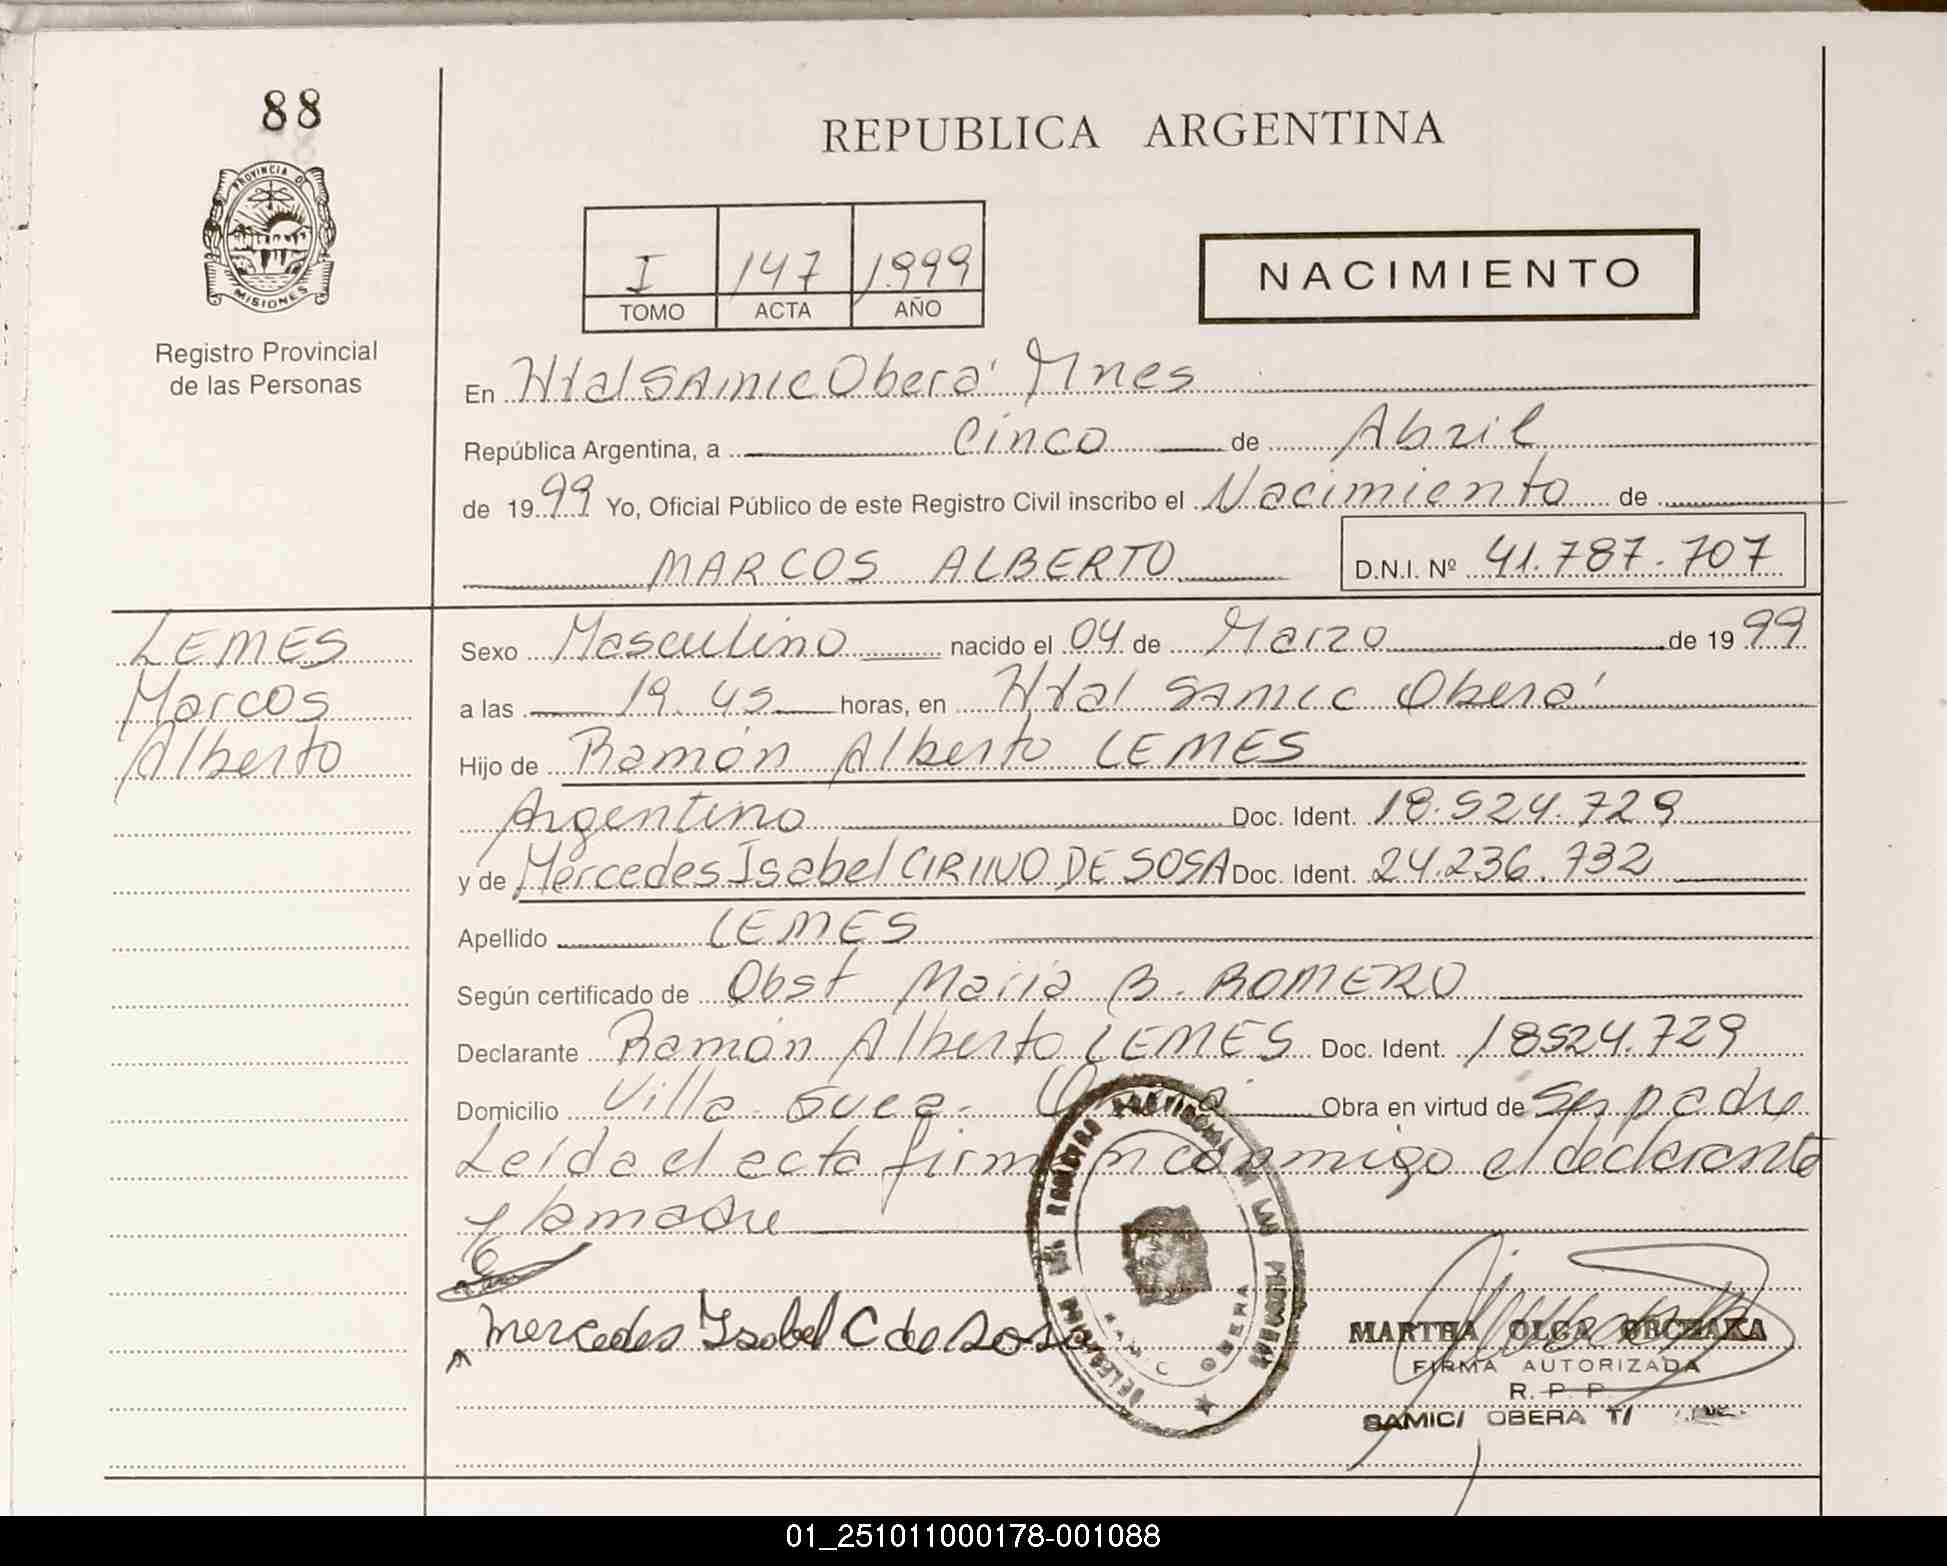 88
REPUBLICA ARGENTINA
PROVINCIA DE
MISIONES
Registro Provincial
de las Personas
I 147 1.999
TOMO ACTA AÑO
NACIMIENTO
En Htal SAMIC Oberá Mnes
República Argentina, a Cinco de Abril
de 1999 Yo, Oficial Público de este Registro Civil inscribo el Nacimiento de
MARCOS ALBERTO D.N.I. Nº 41.787.707
LEMES
Marcos
Alberto
Sexo Masculino nacido el 04 de Marzo de 1999
a las 19.45 horas, en Htal SAMIC Oberá
Hijo de Ramón Alberto LEMES
Argentino Doc. Ident. 18.524.729
y de Mercedes Isabel CIRINO DE SOSA Doc. Ident. 24.236.732
Apellido LEMES
Según certificado de Obst María B. ROMERO
Declarante Ramón Alberto LEMES Doc. Ident. 18524.729
Domicilio Villa Svea. Obra en virtud de Ser padre
Leída el acta firman conmigo el declarante
y la madre
Mercedes Isabel C de Sosa
OBERA
MARTHA OLGA
FIRMA AUTORIZADA
R. P. P.
SAMIC/ OBERA T/
01_251011000178-001088